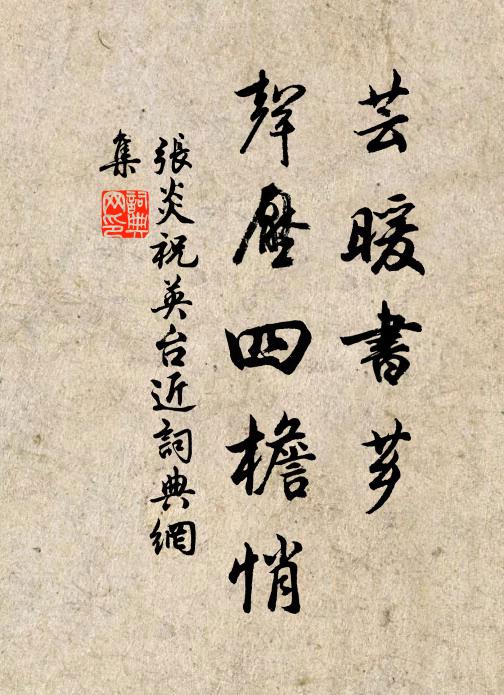 芸暖書芗
聲壓四檐悄
張炎祝英台近詞典網
集
詞典
网印